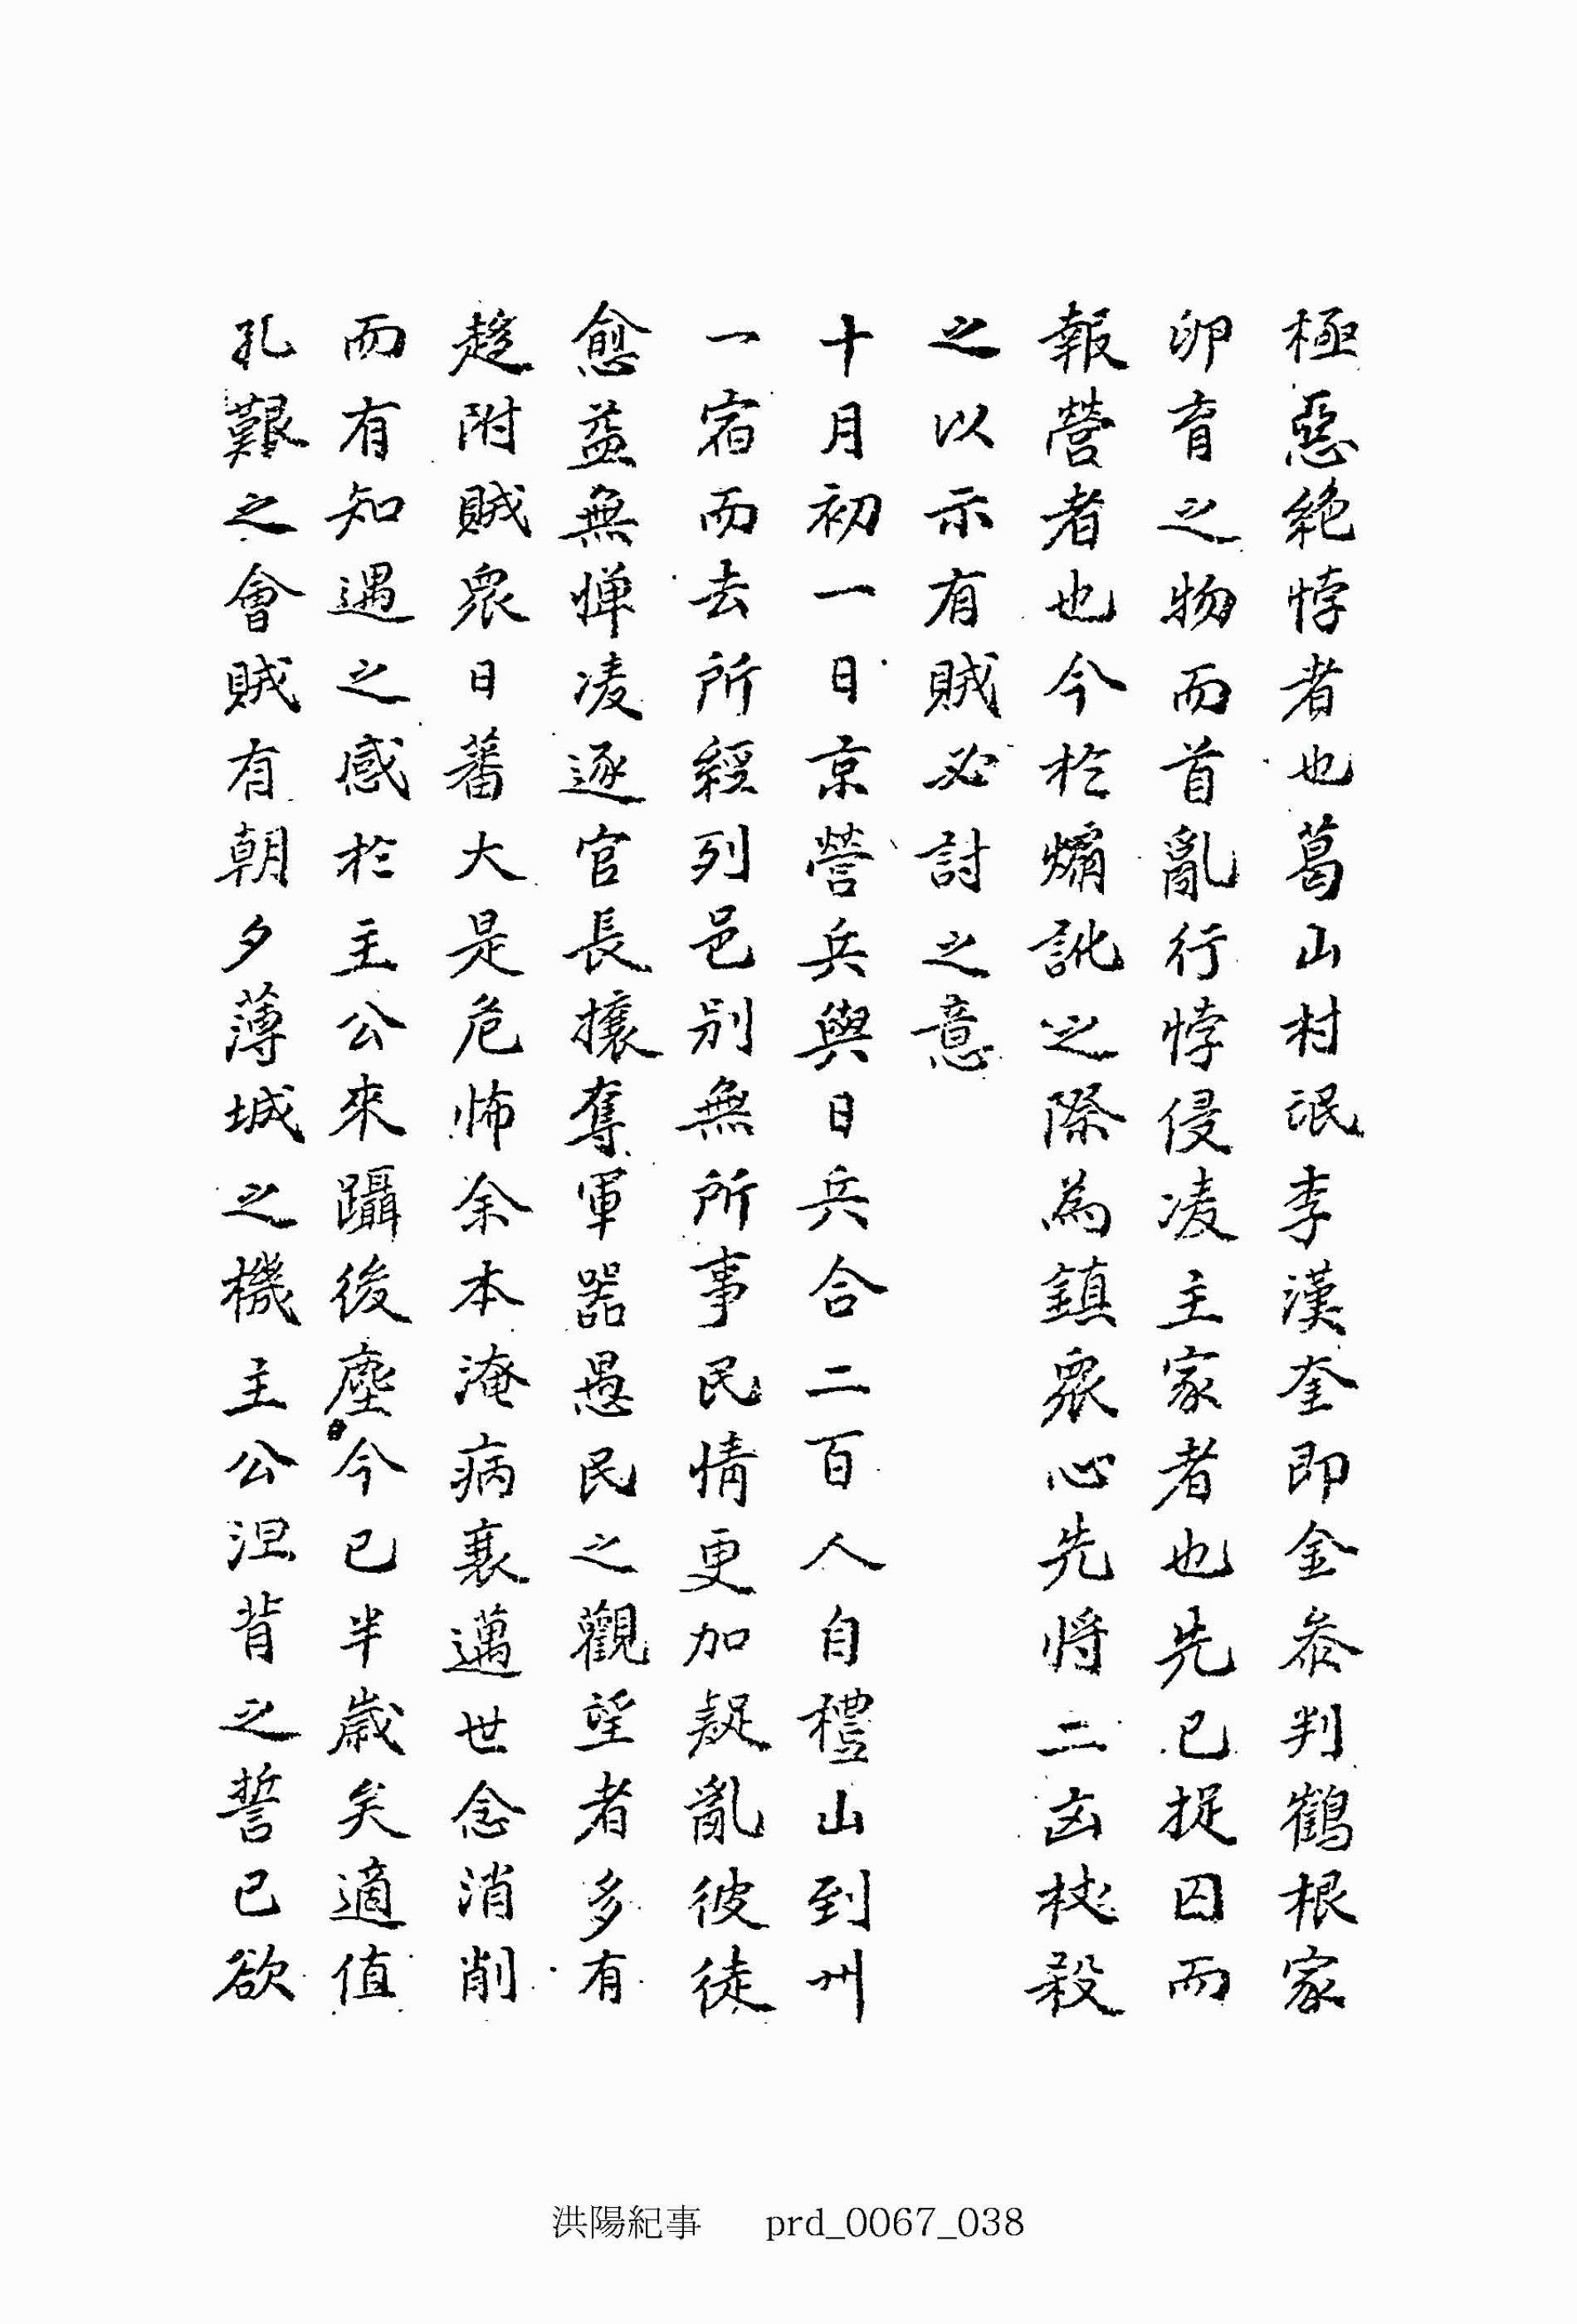 極惡絶悖者也葛山村氓李漢奎即金叅判鶴根家
卵育之物而首亂行悖侵凌主家者也先已捉囚而
報營者也今於煽訛之際為鎮衆心先將二凶杖殺
之以示有賊必討之意
十月初一日京營兵與日兵合二百人自禮山到州
一宿而去所經列邑別無所事民情更加疑亂彼徒
愈益無憚凌逐官長攘奪軍器愚民之觀望者多有
趍附賊衆日蕃大是危怖余本淹病衰邁世念消削
而有知遇之感於主公來躡後塵今已半歲矣適值
孔艱之會賊有朝夕薄城之機主公涅背之誓已欲
洪陽紀事 prd_0067_038